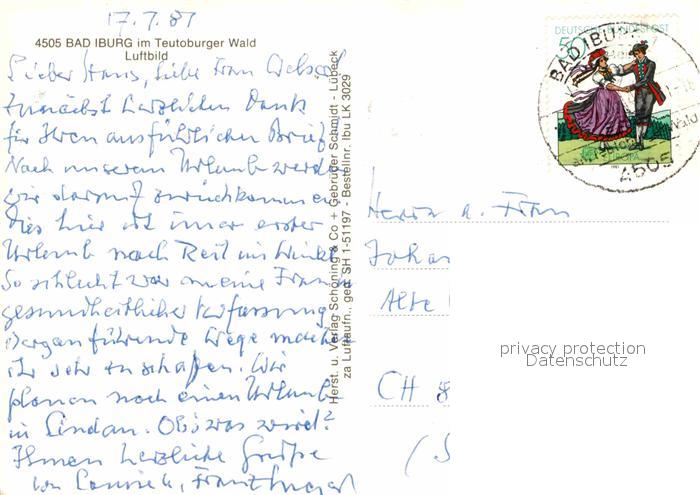 17.7.81
4505 BAD IBURG im Teutoburger Wald
Luftbild
Lieber Hans, liebe Frau
zunächst herzlichen Dank
für Ihren ausführlichen Brief
Nach unserem Urlaub werden
wir darauf zurückkommen
Dies hier ist unser erster
Urlaub nach Reit im Winkl
So schlecht war meine Frau in
gesundheitlicher Verfassung
Bergan führende Wege machen
ihr sehr zu schaffen. Wir
planen noch einen Urlaub
in Lindau. Ob's was wird?
Ihnen herzliche Grüße
von
Herst. u. Verlag Schöning & Co + Gebrüder Schmidt - Lübeck
za Luftaufn., geg. SH 1-51197 - Bestellnr. Ibu LK 3029
DEUTSCHE BUNDESPOST
50
EUROPA
BAD IBURG
4505
Herrn u. Frau
Johan
Alte
CH 8
(S
privacy protection
Datenschutz